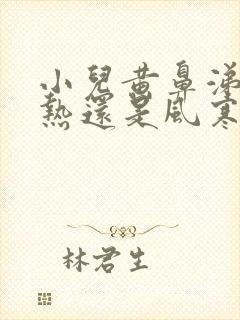 小兒黃鼻涕
熱還是風寒
林君生